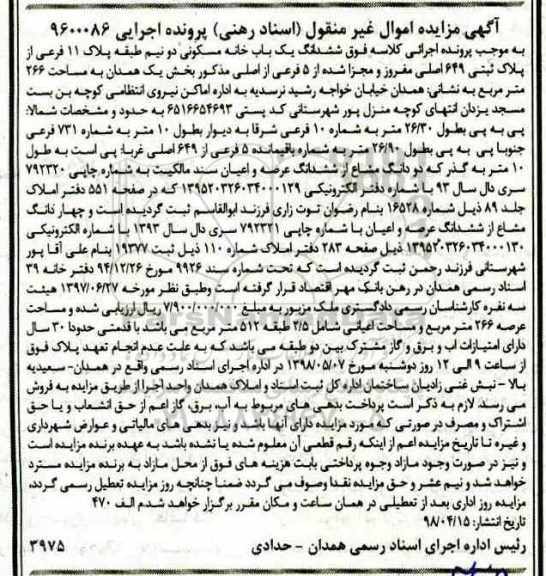 آگهی مزایده اموال غیر منقول (اسناد رهنی) پرونده اجرایی ۹۶۰۰۰۸۶
به موجب پرونده اجرائی کلاسه فوق ششدانگ یک باب خانه مسکونی دو نیم طبقه پلاک ۱۱ فرعی از
پلاک ثبتی ۶۴۹ اصلی مفروز و مجزا شده از ۵ فرعی از اصلی مذکور بخش یک همدان به مساحت ۲۶۶
متر مربع به نشانی: همدان خیابان خواجه رشید نرسدیه به اداره اماکن نیروی انتظامی کوچه بن بست
مسجد یزدان انتهای کوچه منزل پور شهرستانی کد پستی ۶۵۱۶۶۵۴۶۹۳ به حدود و مشخصات شمالا:
پی به پی بطول ۲۶/۳۰ متر به شماره ۱۰ فرعی شرقا به دیوار بطول ۱۰ متر به شماره ۷۳۱ فرعی
جنوبا پی به پی بطول ۲۶/۹۰ متر به شماره باقیمانده ۵ فرعی از ۶۴۹ اصلی غربا: پی است به طول
۱۰ متر به گذر که دو دانگ مشاع از ششدانگ عرصه و اعیان سند مالکیت به شماره چاپی ۷۹۲۳۲۰
سری دال سال ۹۳ با شماره دفتر الکترونیکی ۱۳۹۵۲۰۳۲۶۰۳۴۰۰۰۱۲۹ که در صفحه ۵۵۱ دفتر املاک
جلد ۸۹ ذیل شماره ۱۶۵۲۸ بنام رضوان توت زاری فرزند ابوالقاسم ثبت گردیده است و چهار دانگ
مشاع از ششدانگ عرصه و اعیان با شماره چاپی ۷۹۲۳۲۱ سری دال سال ۱۳۹۳ با شماره الکترونیکی
۱۳۹۵۲۰۳۲۶۰۳۴۰۰۰۱۳۰ ذیل صفحه ۲۸۳ دفتر املاک شماره ۱۱۰ ذیل ثبت ۱۹۳۷۷ بنام علی آقا پور
شهرستانی فرزند رحمن ثبت گردیده است که تحت شماره سند ۹۹۲۶ مورخ ۹۴/۱۲/۲۶ دفتر خانه ۳۹
اسناد رسمی همدان در رهن بانک مهر اقتصاد قرار گرفته است وطبق نظر مورخه ۱۳۹۷/۰۶/۲۷ هیئت
سه نفره کارشناسان رسمی دادگستری ملک مزبور به مبلغ ۷/۹۰۰/۰۰۰/۰۰۰ ریال ارزیابی شده و مساحت
عرصه ۲۶۶ متر مربع و مساحت اعیانی شامل ۲/۵ طبقه ۵۱۲ متر مربع می باشد با قدمتی حدودا ۳۰ سال
دارای امتیازات اب و برق و گاز مشترک بین دو طبقه می باشد که به علت عدم انجام تعهد پلاک فوق
از ساعت ۹ الی ۱۲ روز دوشنبه مورخ ۱۳۹۸/۰۵/۰۷ در اداره اجرای اسناد رسمی واقع در همدان- سعیدیه
بالا - نبش غنی زادیان ساختمان اداره کل ثبت اسناد و املاک همدان واحد اجرا از طریق مزایده به فروش
می رسد لازم به ذکر است پرداخت بدهی های مربوط به آب، برق، گاز اعم از حق انشعاب و یا حق
اشتراک و مصرف در صورتی که مورد مزایده دارای آنها باشد و نیز بدهی های مالیاتی و عوارض شهرداری
و غیره تا تاریخ مزایده اعم از اینکه رقم قطعی آن معلوم شده یا نشده باشد به عهده برنده مزایده است
و نیز در صورت وجود مازاد وجوه پرداختی بابت هزینه های فوق از محل مازاد به برنده مزایده مسترد
خواهد شد و نیم عشر و حق مزایده نقدا وصوف می گردد ضمنا چنانچه روز مزایده تعطیل رسمی گردد،
مزایده روز اداری بعد از تعطیلی در همان ساعت و مکان مقرر برگزار خواهد شد.م الف ۴۷۰
تاریخ انتشار: ۹۸/۰۴/۱۵
رئیس اداره اجرای اسناد رسمی همدان - حدادی ۳۹۷۵